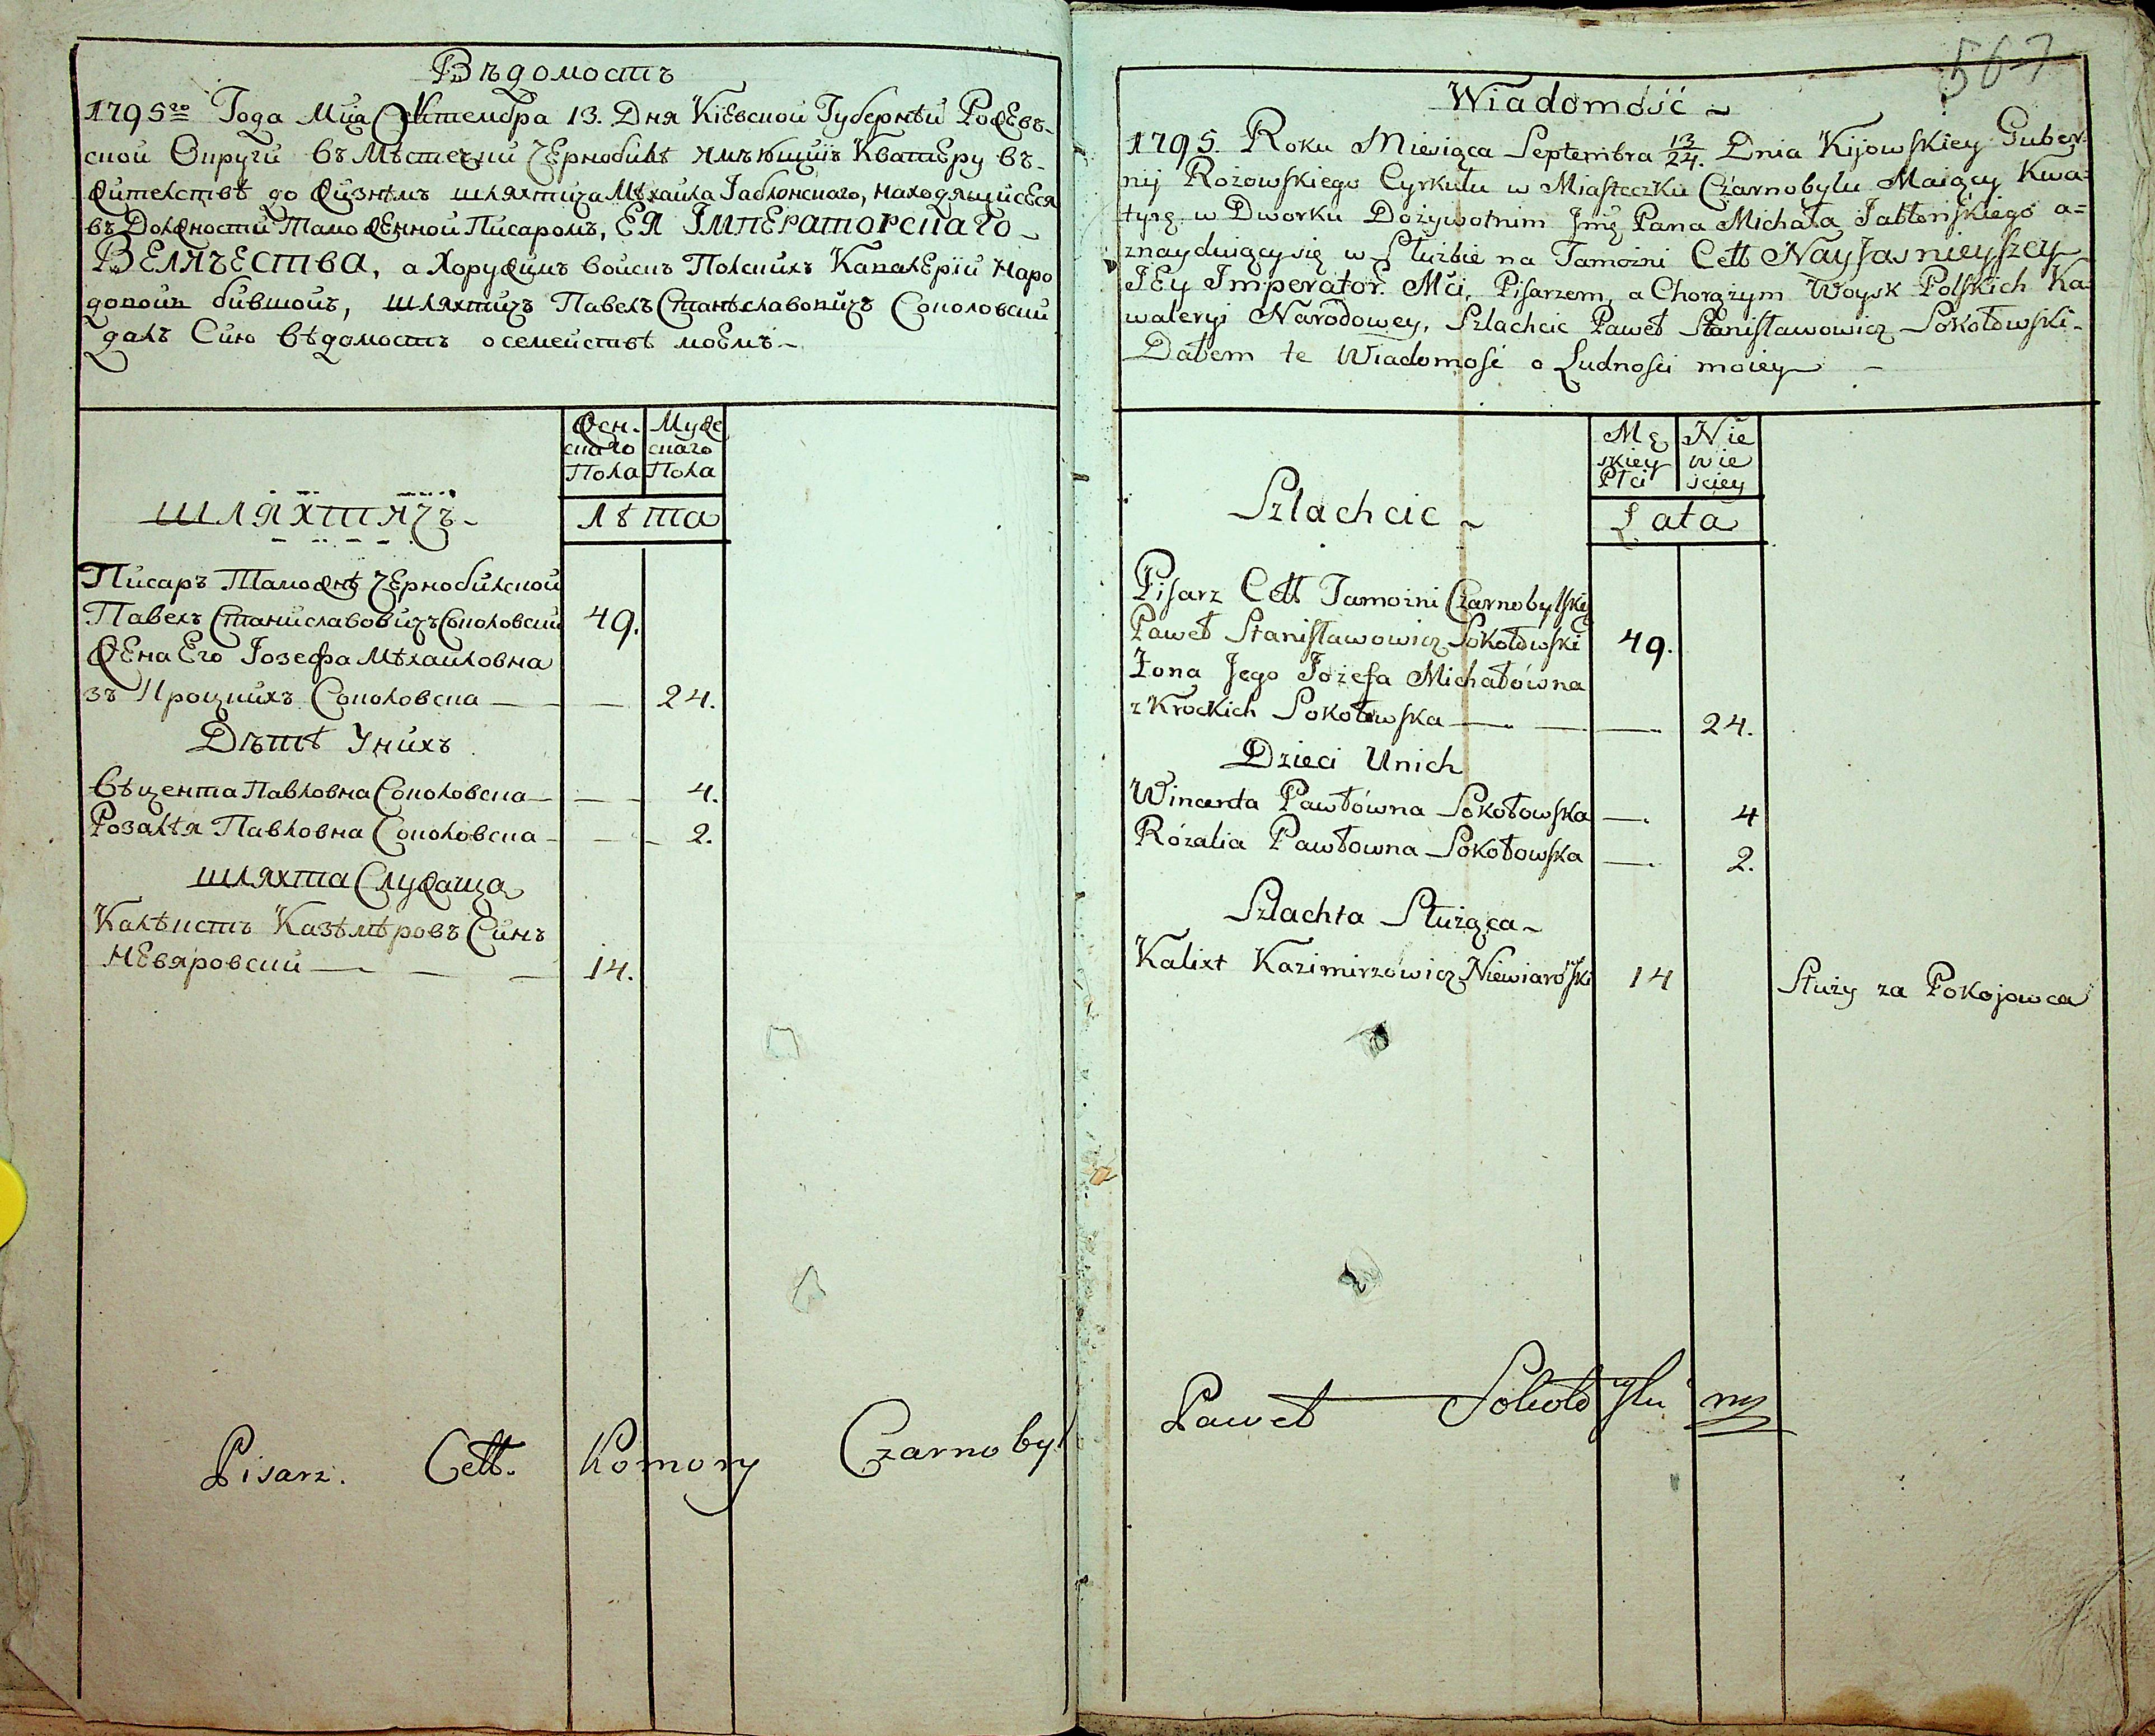 Вѣдомость
1795го Года Мца Септембра 13. Дня Кіевской Губернѣи Рожевъ-
ской Округи въ Мѣстечки Чернобилѣ ямѣющій Кватеру въ-
житеlствѣ до жизнѣмъ шляхтича Мѣхаила Іаблонскаго, находящийсься
въ Должности Таможенной Писаромъ, ЕЯ ІМПЕРАТОРСКАГО
ВЕЛЯЧЕСТВА, а Хоружимъ войскъ Полскихъ Кавалеріи Наро
довой бившой, шляхтичъ Павелъ Станѣславовичъ Соколовский
далъ Сию вѣдомость о семействѣ моемъ
Жен-
скаго
Пола
Мужс
скаго
Пола
шляхтячъ
лѣта
Писаръ Таможнѣ Чернобилской
Павелъ Станиславовичъ Соколовский 49.
Жена Его Іозефа Мѣхаиловна
зъ Кроцкихъ Соколовска 24.
Дѣтѣ Унихъ
Вѣцента Павловна Соколовска 4.
Розалѣя Павловна Соколовска 2.
шляхта Служаща
Калѣкстъ Казѣмѣровъ Синъ
Невяровский 14.
Pisarz. Cełł. Komory Czarnobyl
567
Wiadomość
1795. Roku Miesiąca Septembra 13/24. Dnia Kijowskiey Guber-
nij Rożowskiego Cyrkułu w Miasteczku Czarnobylu Maiący Kwa-
tyrę w Dworku Dożywotnim Jmę Pana Michała Jabłońskiego a=
znayduiący się w Służbie na Tamożni Cełł Nayjasnieyszey
JEy Imperator. Mći, Pisarzem, a Chorążym Woysk Polskich Ka-
waleryi Narodowey, Szlachcic Paweł Stanisławowicz Sokołowski-
Dałem te Wiadomość o Ludności moiey
Mę
skiey
Płci
Nie
wie
sciey
Szlachcic
Lata
Pisarz Cełł Tamożni Czarnobylskiej
Paweł Stanisławowicz Sokołowski 49.
Żona Jego Jozefa Michałówna
z Krockich Sokołowska 24.
Dzieci Unich
Wincenta Pawłówna Sokołowska 4
Rózalia Pawłowna Sokołowska 2.
Szlachta Służąca
Kalixt Kazimirzowicz Niewiarowski 14 Służy za Pokojowca
Paweł Sokołowski mp